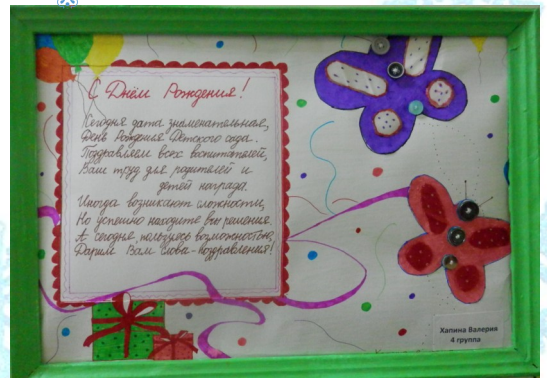 С Днём Рождения!
Сегодня дата знаменательная,
День Рождения Детского сада.
Поздравляем всех воспитателей,
Ваш труд для родителей и
детей награда.
Иногда возникают сложности,
Но успешно находите вы решения.
А сегодня, пользуясь возможностью,
Дарим Вам слова-поздравления!
Хапина Валерия
4 группа